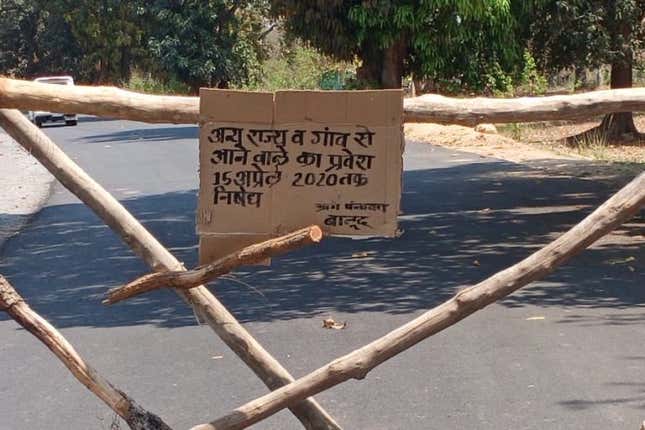 अन्य राज्य व गांव से
आने वाले का प्रवेश
15 अप्रेल 2020 तक
निषेध
ग्राम पंचायत